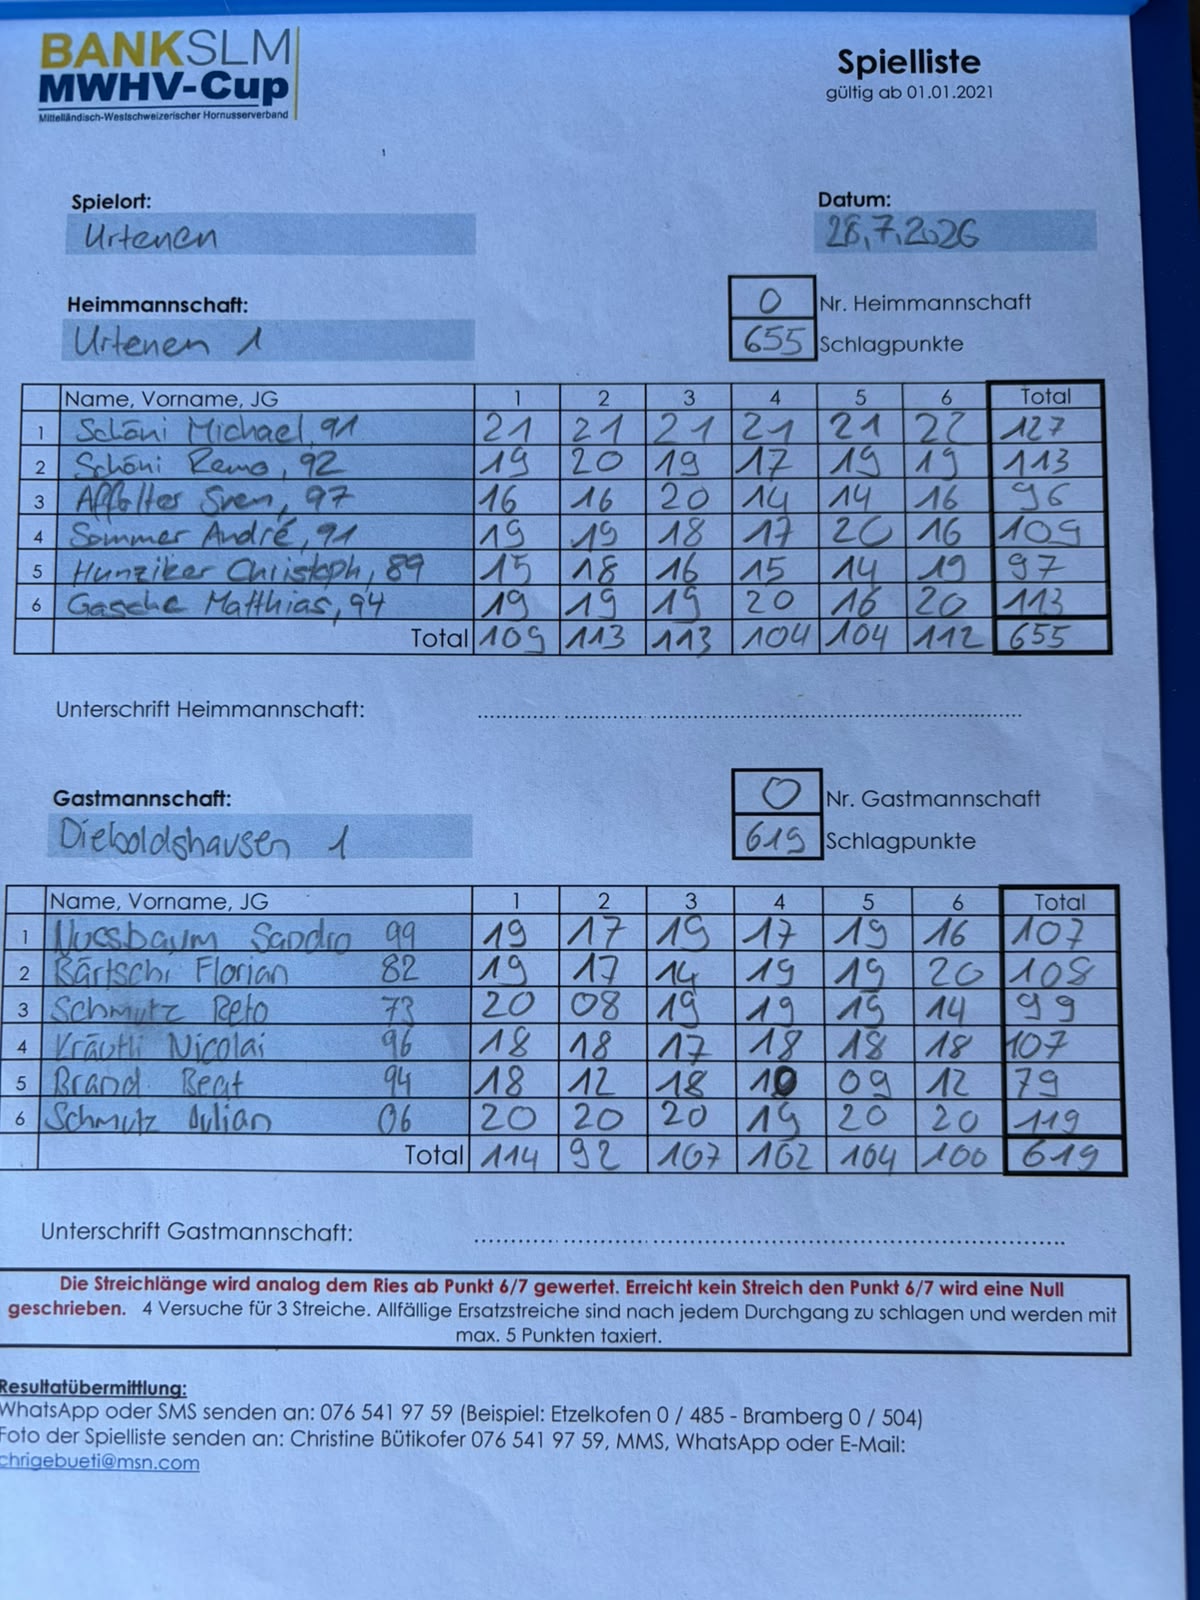 BANKSLM
MWHV-Cup
Mittelländisch-Westschweizerischer Hornusserverband
Spielliste
gültig ab 01.01.2021
Spielort:
Urtenen
Datum:
28.7.2026
Heimmannschaft:
Urtenen 1
0 Nr. Heimmannschaft
655 Schlagpunkte
Name, Vorname, JG 1 2 3 4 5 6 Total
1 Schöni Michael, 91 21 21 21 21 21 22 127
2 Schöni Remo, 92 19 20 19 17 19 19 113
3 Affolter Sven, 97 16 16 20 14 14 16 96
4 Sommer André, 91 19 19 18 17 20 16 109
5 Hunziker Christoph, 89 15 18 16 15 14 19 97
6 Gasche Matthias, 94 19 19 19 20 16 20 113
Total 109 113 113 104 104 112 655
Unterschrift Heimmannschaft:
Gastmannschaft:
Dieboldshausen 1
0 Nr. Gastmannschaft
619 Schlagpunkte
Name, Vorname, JG 1 2 3 4 5 6 Total
1 Nussbaum Sandro 99 19 17 19 17 19 16 107
2 Bärtschi Florian 82 19 17 14 19 19 20 108
3 Schmutz Reto 73 20 08 19 19 19 14 99
4 Kräuthli Nicolai 96 18 18 17 18 18 18 107
5 Brand Beat 94 18 12 18 10 09 12 79
6 Schmutz Julian 06 20 20 20 19 20 20 119
Total 114 92 107 102 104 100 619
Unterschrift Gastmannschaft:
Die Streichlänge wird analog dem Ries ab Punkt 6/7 gewertet. Erreicht kein Streich den Punkt 6/7 wird eine Null
geschrieben. 4 Versuche für 3 Streiche. Allfällige Ersatzstreiche sind nach jedem Durchgang zu schlagen und werden mit
max. 5 Punkten taxiert.
Resultatübermittlung:
WhatsApp oder SMS senden an: 076 541 97 59 (Beispiel: Etzelkofen 0 / 485 - Bramberg 0 / 504)
Foto der Spielliste senden an: Christine Bütikofer 076 541 97 59, MMS, WhatsApp oder E-Mail:
chrigebueti@msn.com